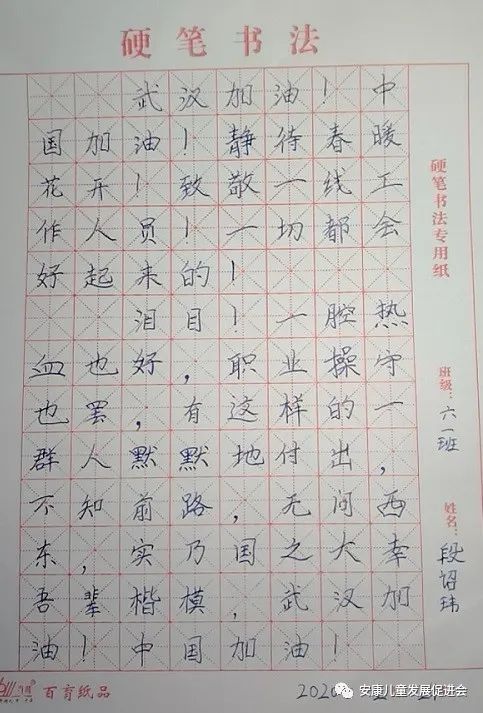 硬笔书法
武汉加油！中
国加油！静待春暖
花开！致敬一线工
作人员！一切都会
好起来的！
泪目！一腔热
血也好，职业操守
也罢，有这样的一
群人默默地付出，
不知前路，无问西
东，实乃国之大幸
吾辈楷模，武汉加
油！中国加油！
硬笔书法专用纸
班级：六一班
姓名：段绍玮
百育纸品
安康儿童发展促进会